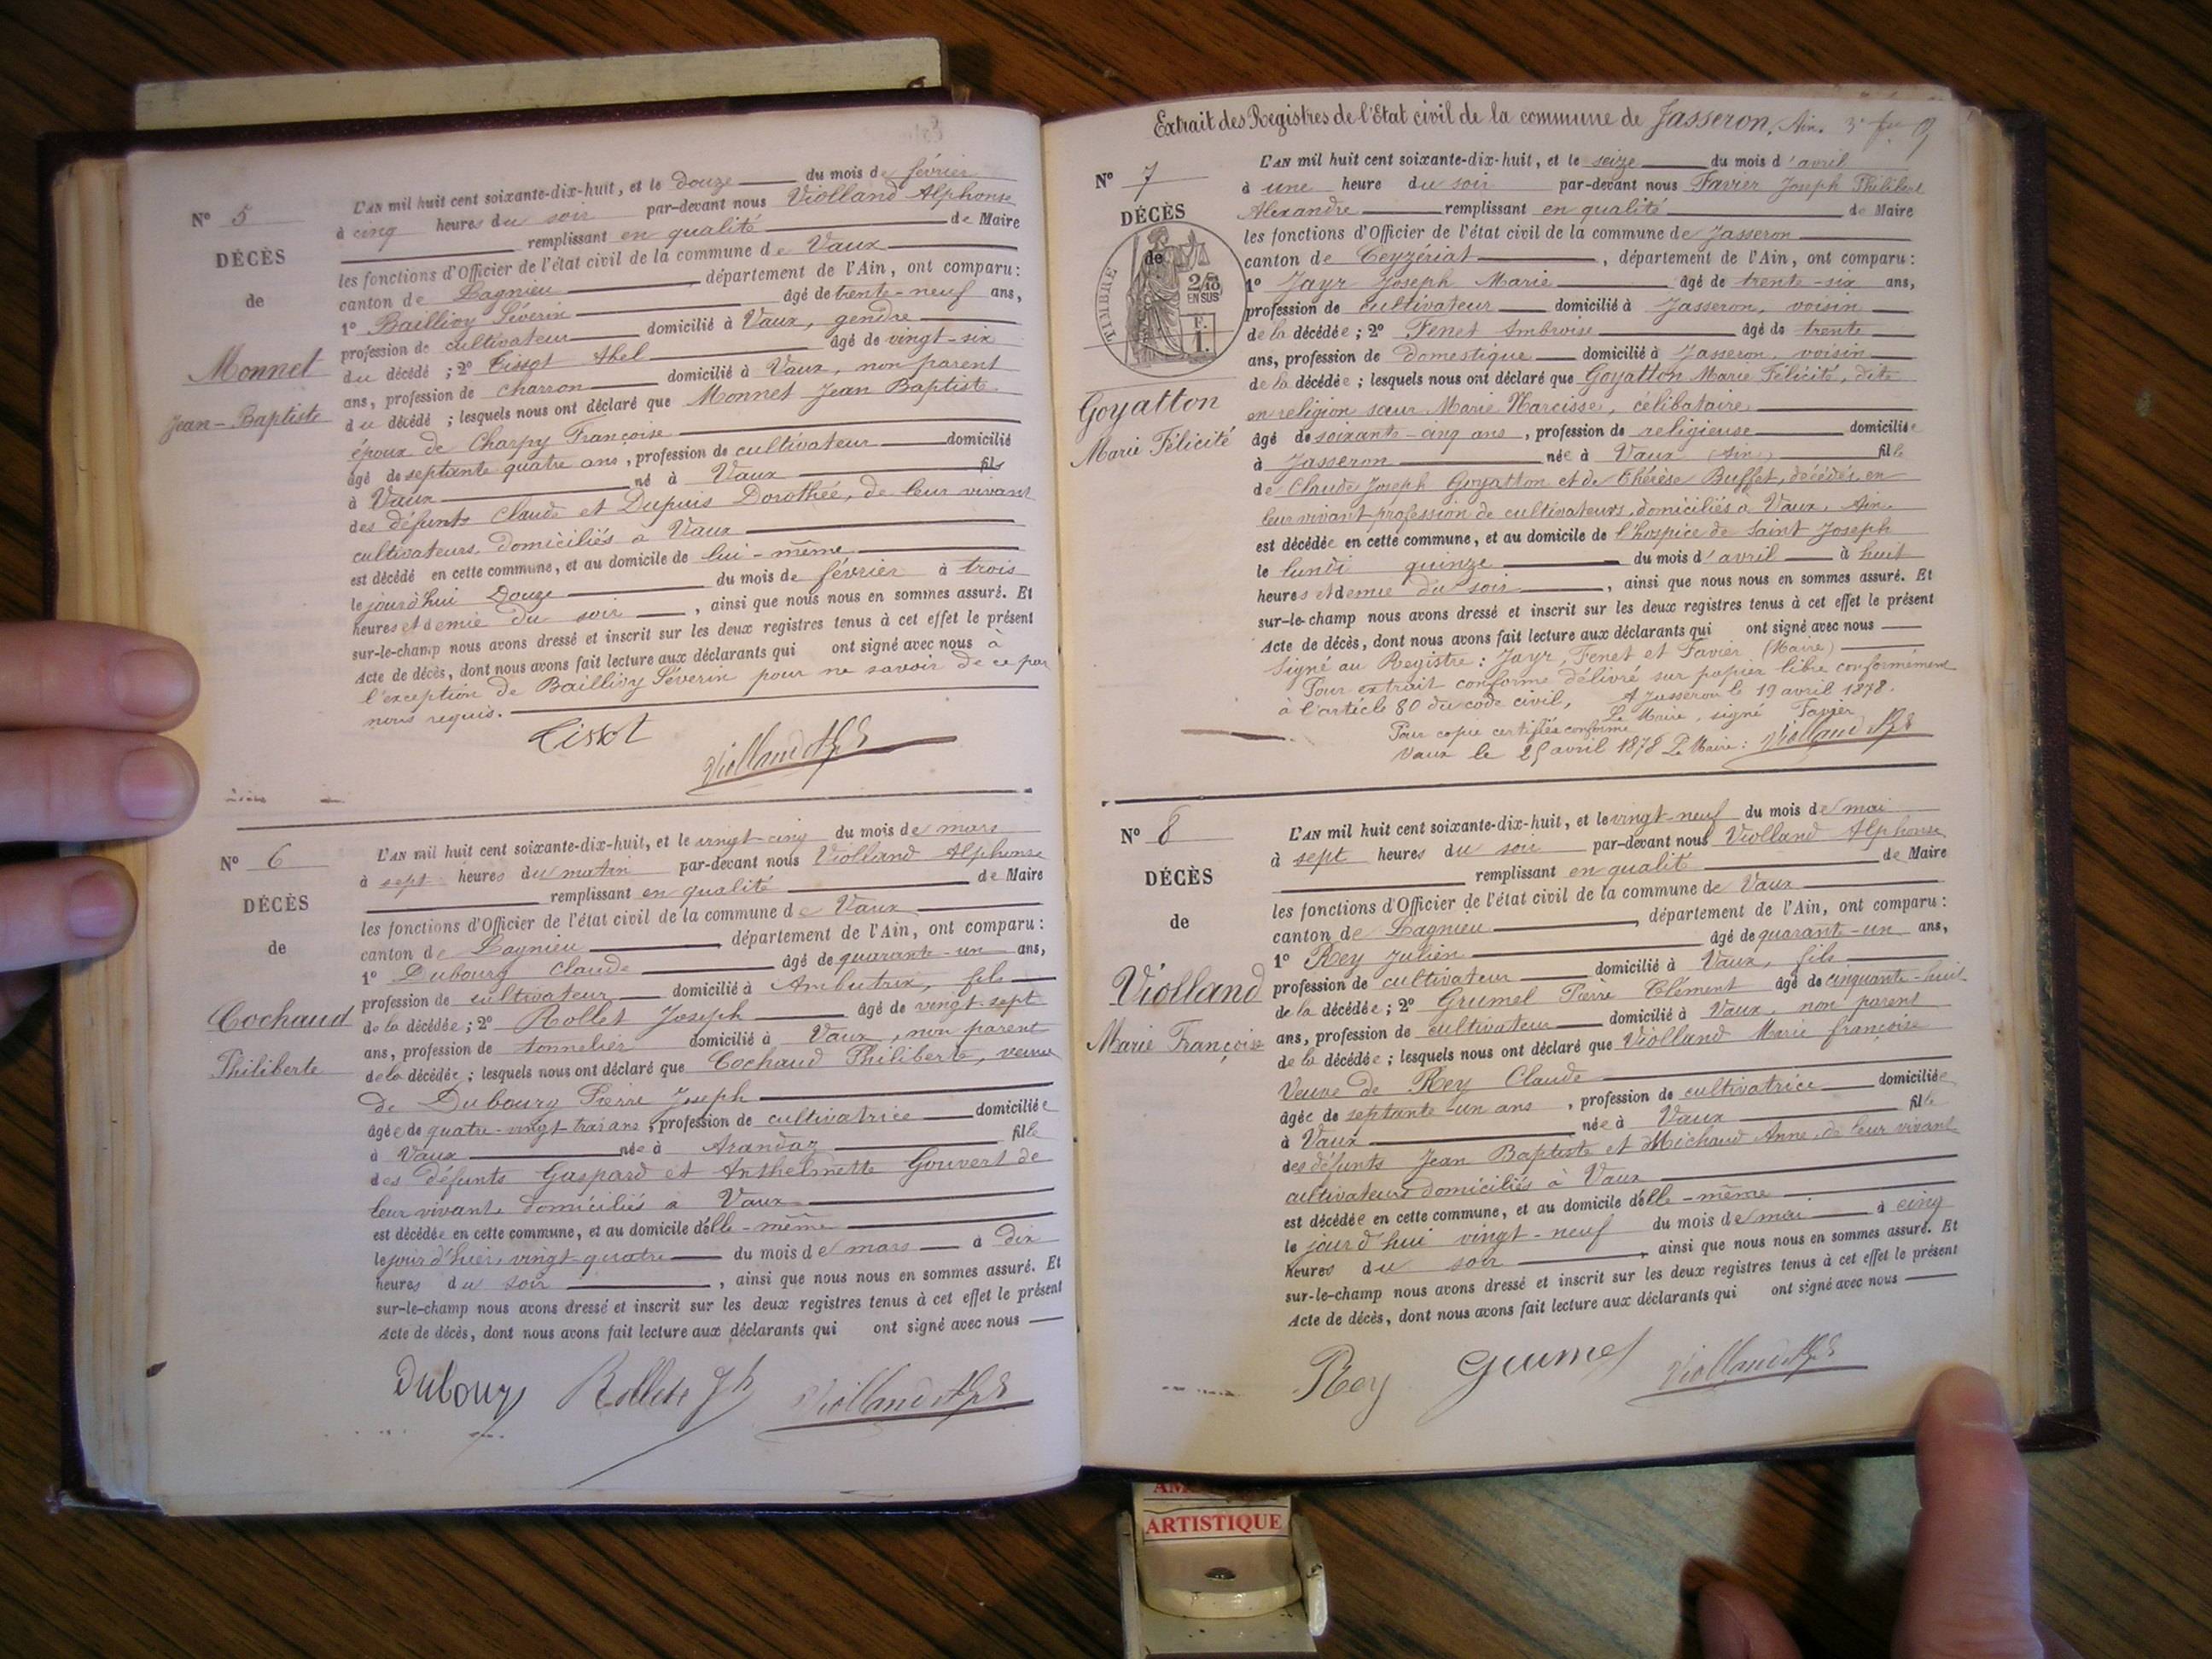 N° 5
DÉCÈS
de
Monnet
Jean-Baptiste
L'AN mil huit cent soixante-dix-huit, et le Douze du mois de février
à cinq heures du soir par-devant nous Violland Alphonse
remplissant en qualité de Maire
les fonctions d'Officier de l'état civil de la commune de Vaux
canton de Lagnieu, département de l'Ain, ont comparu :
1° Baillivy Séverin âgé de trente-neuf ans,
profession de cultivateur domicilié à Vaux, gendre
du décédé ; 2° Tissot Abel âgé de vingt-six
ans, profession de charron domicilié à Vaux, non parent
du décédé ; lesquels nous ont déclaré que Monnet Jean Baptiste
époux de Charpy Françoise
âgé de septante quatre ans, profession de cultivateur domicilié
à Vaux né à Vaux fils
des défunts Claude et Dupuis Dorothée, de leur vivant
cultivateurs, domiciliés à Vaux
est décédé en cette commune, et au domicile de lui-même
le jourd'hui Douze du mois de février à trois
heures et demie du soir, ainsi que nous nous en sommes assuré. Et
sur-le-champ nous avons dressé et inscrit sur les deux registres tenus à cet effet le présent
Acte de décès, dont nous avons fait lecture aux déclarants qui ont signé avec nous à
l'exception de Baillivy Séverin pour ne savoir de ce par
nous requis.
Tissot
Violland
N° 6
DÉCÈS
de
Cochaud
Philiberte
L'AN mil huit cent soixante-dix-huit, et le vingt-cinq du mois de mars
à sept heures du matin par-devant nous Violland Alphonse
remplissant en qualité de Maire
les fonctions d'Officier de l'état civil de la commune de Vaux
canton de Lagnieu, département de l'Ain, ont comparu :
1° Dubourg Claude âgé de quarante-un ans,
profession de cultivateur domicilié à Ambutrix, fils
de la décédée ; 2° Rollet Joseph âgé de vingt-sept
ans, profession de tonnelier domicilié à Vaux, non parent
de la décédée ; lesquels nous ont déclaré que Cochaud Philiberte, veuve
de Dubourg Pierre Joseph
âgée de quatre-vingt-trois ans, profession de cultivatrice domiciliée
à Vaux née à Arandaz fille
des défunts Gaspard et Anthelmette Gouvert de
leur vivant domiciliés à Vaux
est décédée en cette commune, et au domicile d'elle-même
le jour d'hier, vingt-quatre du mois de mars à dix
heures du soir, ainsi que nous nous en sommes assuré. Et
sur-le-champ nous avons dressé et inscrit sur les deux registres tenus à cet effet le présent
Acte de décès, dont nous avons fait lecture aux déclarants qui ont signé avec nous
Dubourg Rollet Jh Violland
Extrait des Registres de l'Etat civil de la commune de Jasseron, Ain.
N° 7
DÉCÈS
de
TIMBRE
2/10
EN SUS
F.
1.
Goyatton
Marie Félicité
L'AN mil huit cent soixante-dix-huit, et le seize du mois d'avril
à une heure du soir par-devant nous Favier Joseph Philibert
Alexandre remplissant en qualité de Maire
les fonctions d'Officier de l'état civil de la commune de Jasseron
canton de Ceyzériat, département de l'Ain, ont comparu :
1° Jayr Joseph Marie âgé de trente-six ans,
profession de cultivateur domicilié à Jasseron, voisin
de la décédée ; 2° Fenet Ambroise âgé de trente
ans, profession de domestique domicilié à Jasseron, voisin
de la décédée ; lesquels nous ont déclaré que Goyatton Marie Félicité, dite
en religion sœur Marie Narcisse, célibataire
âgé de soixante-cinq ans, profession de religieuse domiciliée
à Jasseron née à Vaux (Ain) fille
de Claude Joseph Goyatton et de Thérèse Buffet, décédés, en
leur vivant profession de cultivateurs, domiciliés à Vaux, Ain.
est décédée en cette commune, et au domicile de l'hospice de Saint Joseph
le lundi quinze du mois d'avril à huit
heures et demie du soir, ainsi que nous nous en sommes assuré. Et
sur-le-champ nous avons dressé et inscrit sur les deux registres tenus à cet effet le présent
Acte de décès, dont nous avons fait lecture aux déclarants qui ont signé avec nous
Signé au Registre : Jayr, Fenet et Favier (Maire)
Pour extrait conforme délivré sur papier libre conformément
à l'article 80 du code civil, A Jasseron le 19 avril 1878.
Le Maire, signé Favier
Pour copie certifiée conforme
Vaux le 25 avril 1878 Le Maire : Violland
N° 8
DÉCÈS
de
Violland
Marie Françoise
L'AN mil huit cent soixante-dix-huit, et le vingt-neuf du mois de mai
à sept heures du soir par-devant nous Violland Alphonse
remplissant en qualité de Maire
les fonctions d'Officier de l'état civil de la commune de Vaux
canton de Lagnieu, département de l'Ain, ont comparu :
1° Rey Julien âgé de quarante-un ans,
profession de cultivateur domicilié à Vaux, fils
de la décédée ; 2° Grumel Pierre Clément âgé de cinquante-huit
ans, profession de cultivateur domicilié à Vaux, non parent
de la décédée ; lesquels nous ont déclaré que Violland Marie françoise
Veuve de Rey Claude
âgée de septante-un ans, profession de cultivatrice domiciliée
à Vaux née à Vaux fille
des défunts Jean Baptiste et Michaud Anne, de leur vivant
cultivateurs domiciliés à Vaux
est décédée en cette commune, et au domicile d'elle-même
le jourd'hui vingt-neuf du mois de mai à cinq
heures du soir, ainsi que nous nous en sommes assuré. Et
sur-le-champ nous avons dressé et inscrit sur les deux registres tenus à cet effet le présent
Acte de décès, dont nous avons fait lecture aux déclarants qui ont signé avec nous
Rey Grumel Violland
ARTISTIQUE